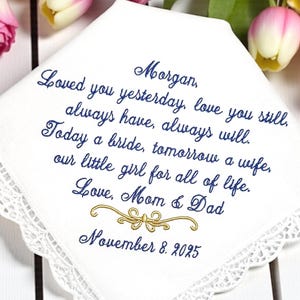 Morgan,
Loved you yesterday, love you still,
always have, always will.
Today a bride, tomorrow a wife,
our little girl for all of life.
Love, Mom & Dad
November 8. 2025